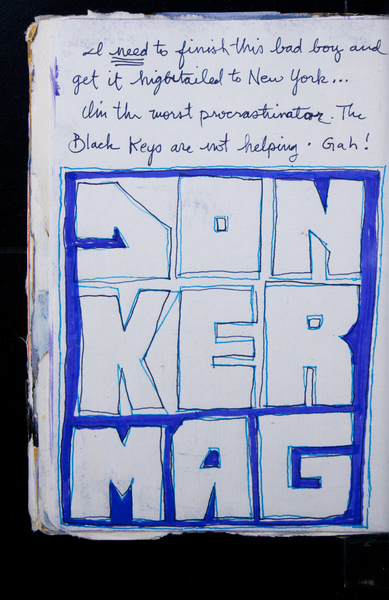 I need to finish this bad boy and
get it hightailed to New York...
I'm the worst procrastinator. The
Black Keys are not helping. Gah!
DON
KER
MAG